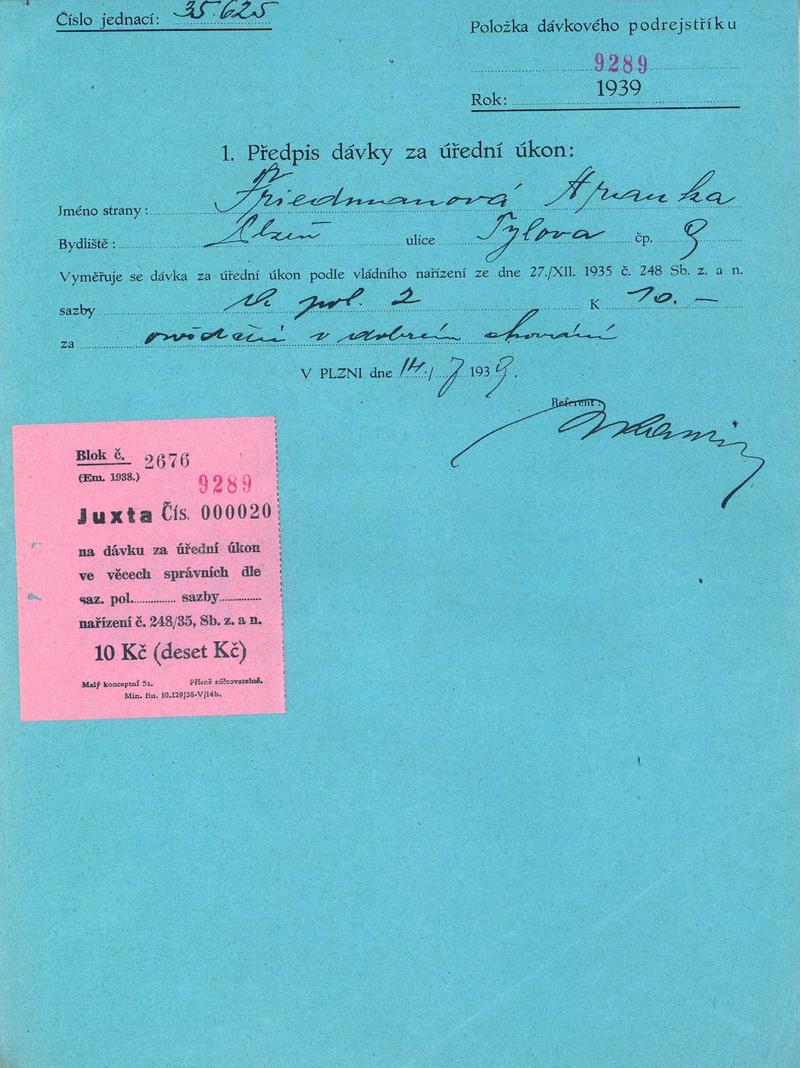 Číslo jednací: 35.625
Položka dávkového podrejstříku
9289
Rok: 1939
1. Předpis dávky za úřední úkon:
Jméno strany: Friedmanová Aranka
Bydliště: Plzeň ulice Tylova čp. 9
Vyměřuje se dávka za úřední úkon podle vládního nařízení ze dne 27./XII. 1935 č. 248 Sb. z. a n.
sazby pol. 2 K 10.–
za osvědčení o dobrém chování
V PLZNI dne 14./7 1939.
Referent:
Blok č. 2676
(Em. 1938.)
9289
Juxta Čís. 000020
na dávku za úřední úkon
ve věcech správních dle
saz. pol. sazby
nařízení č. 248/35, Sb. z. a n.
10 Kč (deset Kč)
Malý konceptní 5a. Přísně zúčtovatelné.
Min. fin. 10.129/38-V/14b.